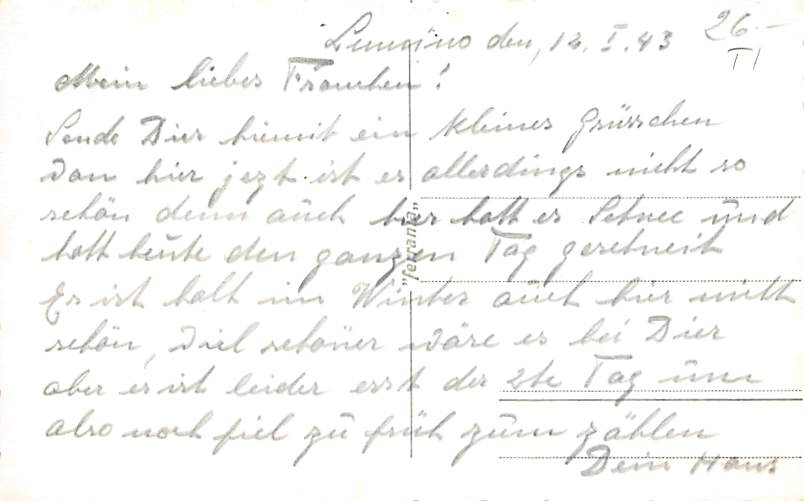 Lumino den, 12. I. 43
26.-
TI
Mein liebes Frauchen!
Sende Dier hiemit ein kleines Grüsschen
von hier jezt ist es allerdings nicht so
schön denn auch hier hatt es Schnee und
hatt heute den ganzen Tag geschneit
Es ist halt im Winter auch hier nicht
schön, viel schöner wäre es bei Dier
aber es ist leider erst der 2te Tag um
also noch fiel zu früh zum zählen
Dein Hans
"ferrania"